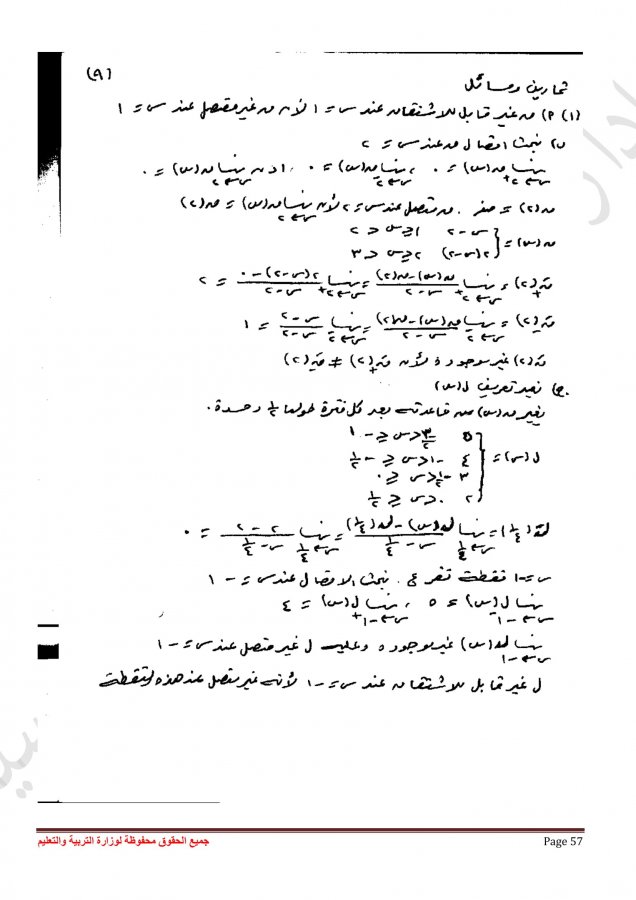 (٩)
تمارين ومسائل
(١) P) ق غير قابل للاشتقاق عند س = ١ لأن ق غير متصل عند س = ١
ب) نبحث اتصال ق عند س = ٢
نهــا ق(س) = ٠ ، نهــا ق(س) = ٠ إذن نهــا ق(س) = ٠
س←٢+ س←٢- س←٢
ق(٢) = صفر . ق متصل عند س = ٢ لأن نهــا ق(س) = ق(٢)
س←٢
ق(س) = { س - ٢ ١ ≤ س < ٢
٢(س-٢) ٢ ≤ س < ٣
قَ+(٢) = نهــا ق(س) - ق(٢) / س - ٢ = نهــا ٢(س-٢) - ٠ / س - ٢ = ٢
س←٢+ س←٢+
قَ-(٢) = نهــا ق(س) - ق(٢) / س - ٢ = نهــا س - ٢ / س - ٢ = ١
س←٢- س←٢-
قَ(٢) غير موجودة لأن قَ+(٢) ≠ قَ-(٢)
ج) نعيد تعريف ل(س)
يغير ق(س) من قاعدته بعد كل فترة طولها ½ وحدة .
ل(س) = { ٥ -٣/٢ < س ≤ -١
٤ -١ < س ≤ -½
٣ -½ < س ≤ ٠
٢ ٠ < س ≤ ½
لَ(¼) = نهــا ل(س) - ل(¼) / س - ¼ = نهــا ٢ - ٢ / س - ¼ = ٠
س←¼ س←¼
س = -١ نقطة تفرع . نبحث الاتصال عند س = -١
نهــا ل(س) = ٥ ، نهــا ل(س) = ٤
س←-١- س←-١+
نهــا ل(س) غير موجودة وعليه ل غير متصل عند س = -١
س←-١
ل غير قابل للاشتقاق عند س = -١ لأنه غير متصل عند هذه النقطة
جميع الحقوق محفوظة لوزارة التربية والتعليم
Page 57